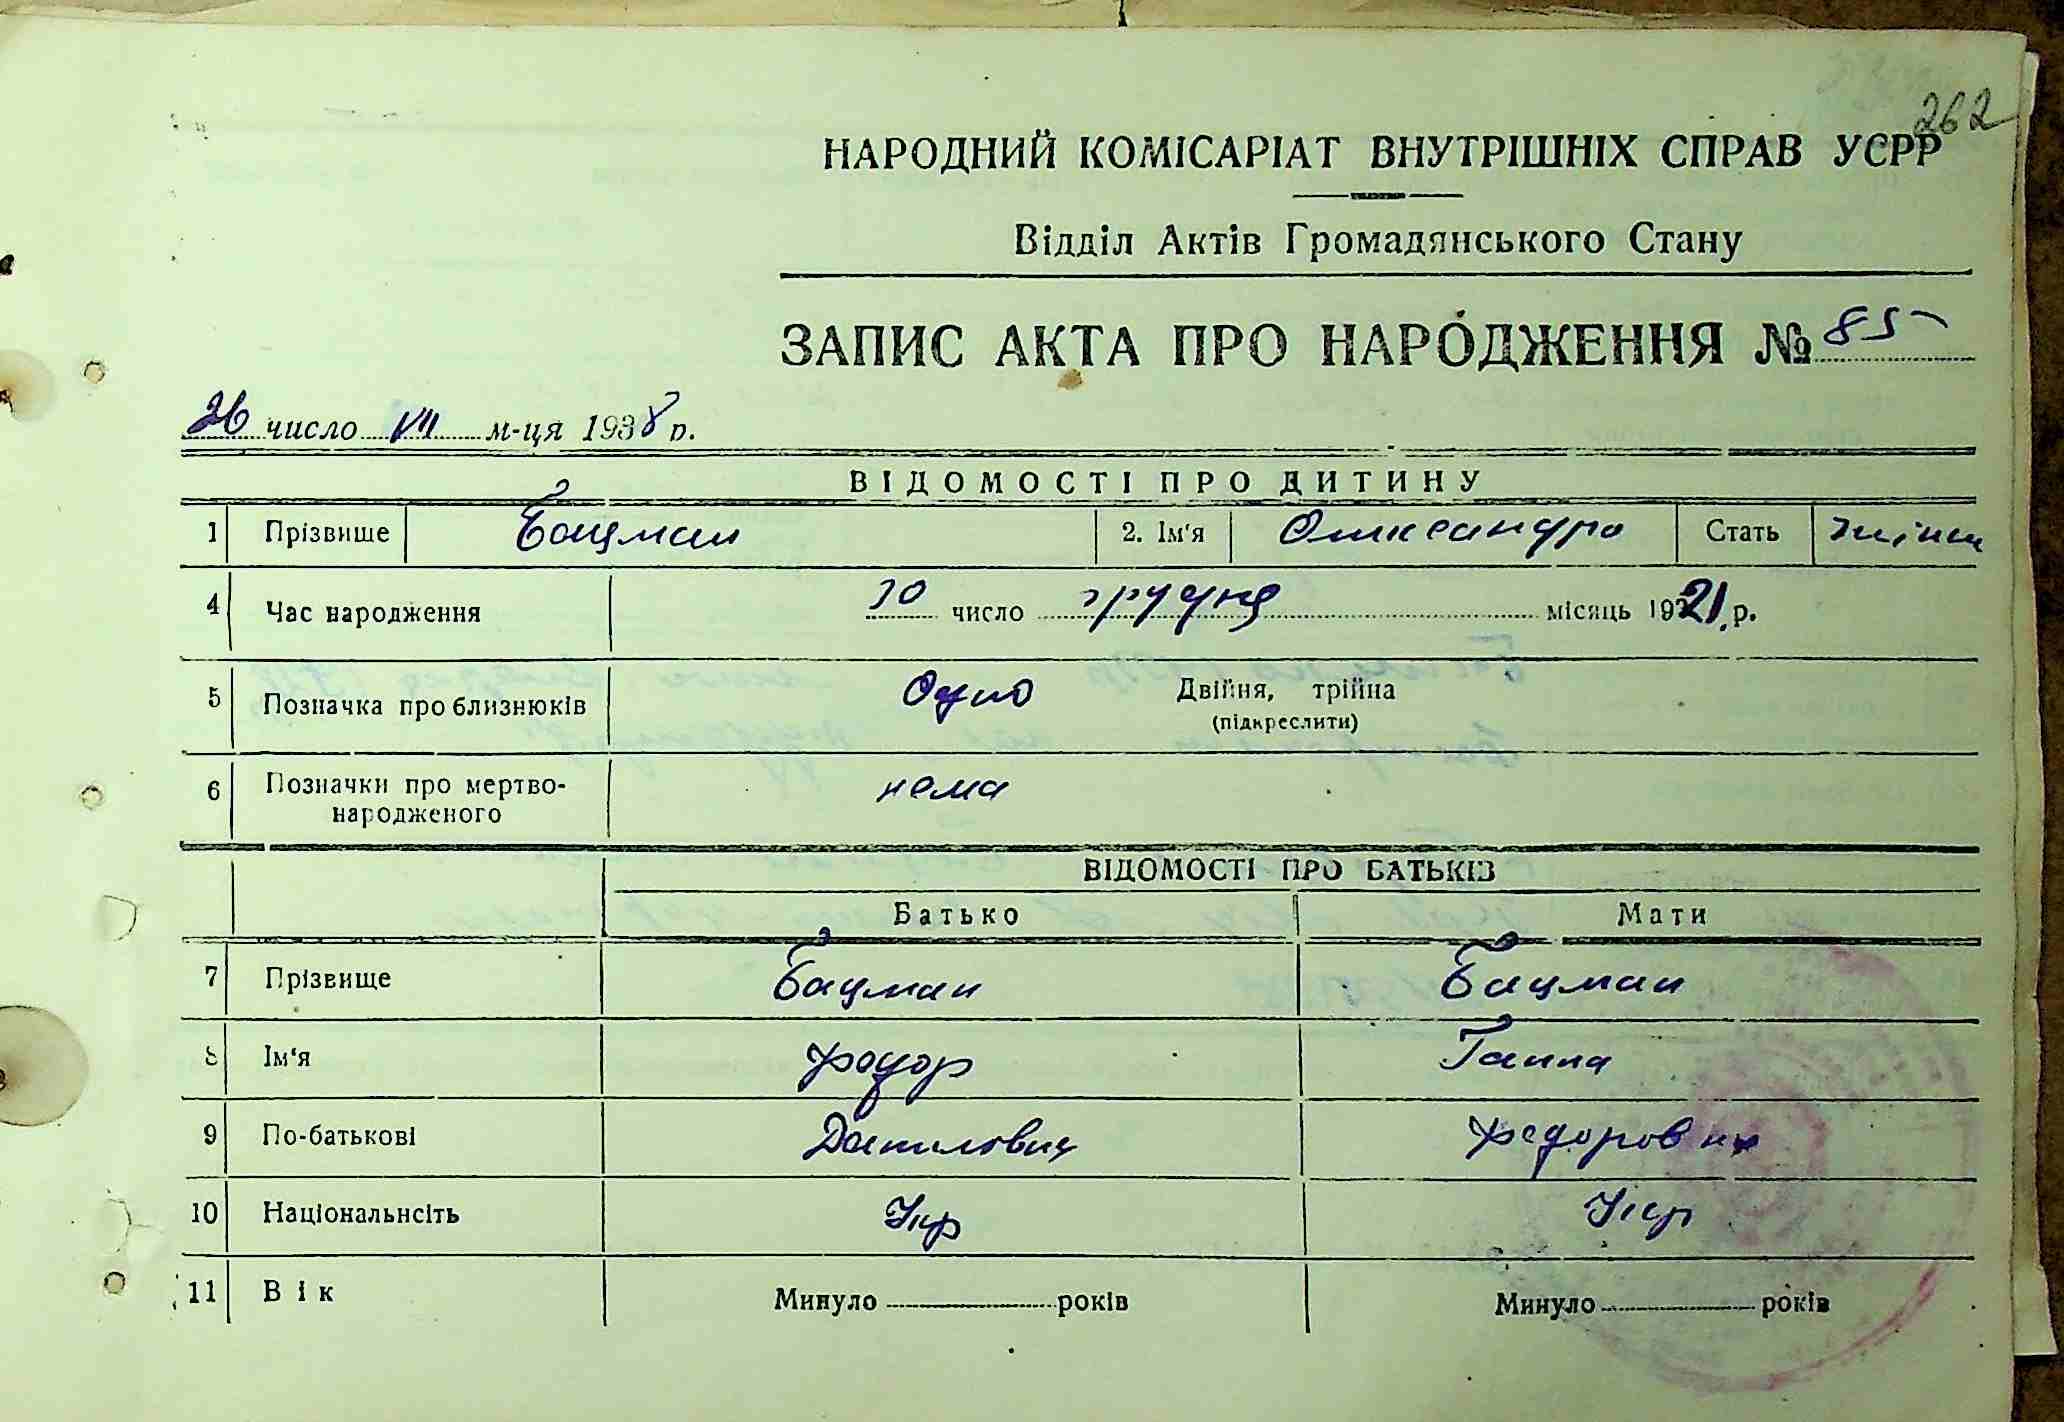 262
НАРОДНИЙ КОМІСАРІАТ ВНУТРІШНІХ СПРАВ УСРР
Відділ Актів Громадянського Стану
ЗАПИС АКТА ПРО НАРОДЖЕННЯ № 85
26 число VII м-ця 1938 р.
ВІДОМОСТІ ПРО ДИТИНУ
1 Прізвище Бацман 2. Ім'я Олександра Стать жіноч
4 Час народження 30 число грудня місяць 1921 р.
5 Позначка про близнюків Одно Двійня, трійна
(підкреслити)
6 Позначки про мертво-
народженого нема
ВІДОМОСТІ ПРО БАТЬКІВ
Батько Мати
7 Прізвище Бацман Бацман
8 Ім'я Федор Ганна
9 По-батькові Данилович Федоровна
10 Національнсіть Укр Укр
11 Вік Минуло років Минуло років